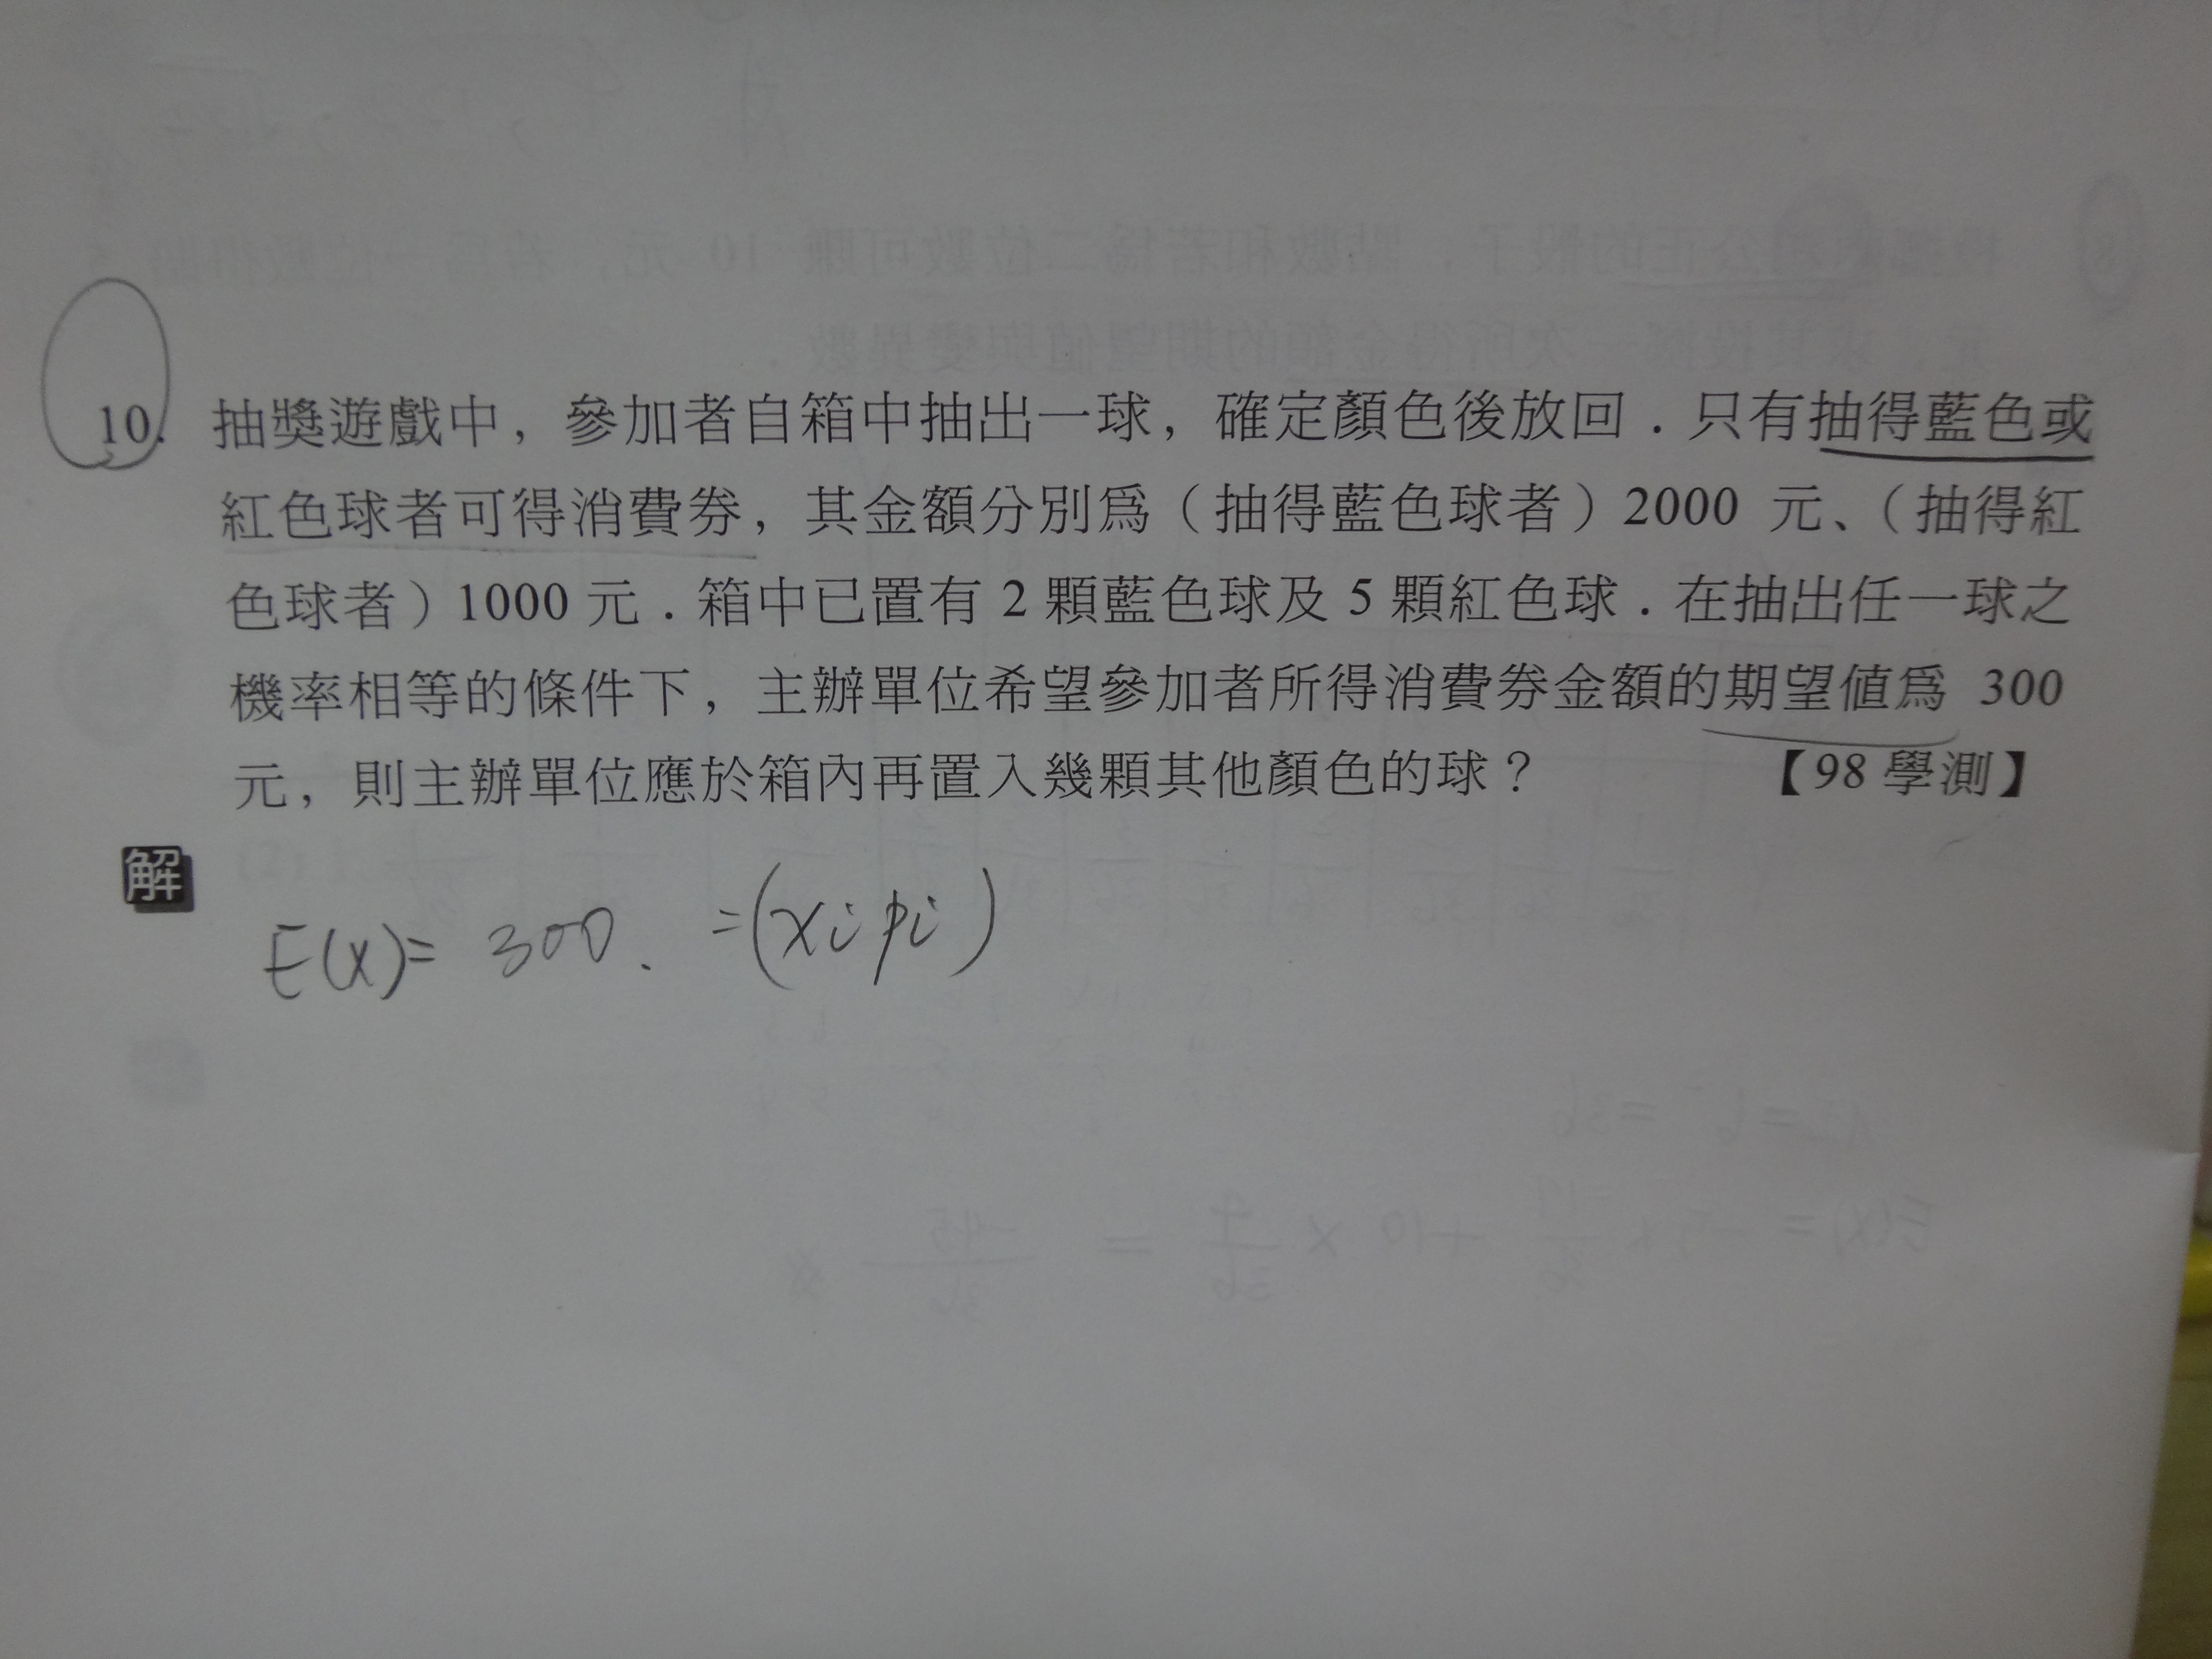 10. 抽獎遊戲中，參加者自箱中抽出一球，確定顏色後放回．只有抽得藍色或
紅色球者可得消費券，其金額分別爲（抽得藍色球者）2000 元、（抽得紅
色球者）1000 元．箱中已置有 2 顆藍色球及 5 顆紅色球．在抽出任一球之
機率相等的條件下，主辦單位希望參加者所得消費券金額的期望値爲 300
元，則主辦單位應於箱內再置入幾顆其他顏色的球？ 【98 學測】
解
E(x)= 300. =(xi pi)